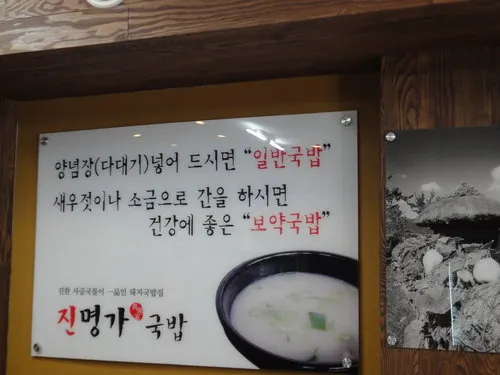 양념장(다대기)넣어 드시면 "일반국밥"
새우젓이나 소금으로 간을 하시면
건강에 좋은 "보약국밥"
진한 사골국물이 一品인 돼지국밥집
진명가 국밥